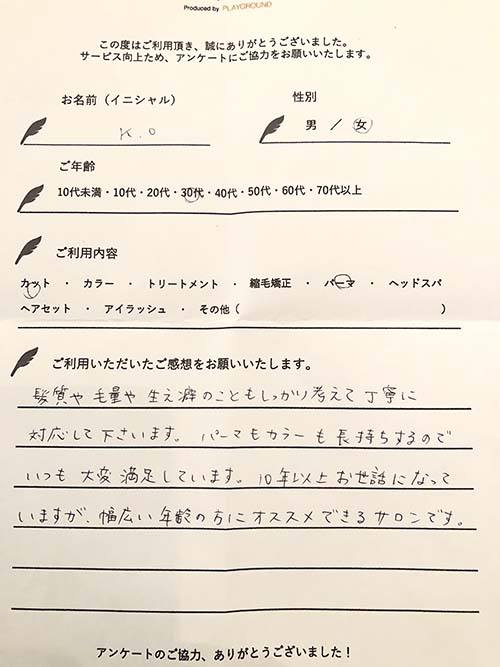 Produced by PLAYGROUND
この度はご利用頂き、誠にありがとうございました。
サービス向上ため、アンケートにご協力をお願いいたします。
お名前（イニシャル）
性別
K.O
男 / 女
ご年齢
10代未満・10代・20代・30代・40代・50代・60代・70代以上
ご利用内容
カット ・ カラー ・ トリートメント ・ 縮毛矯正 ・ パーマ ・ ヘッドスパ
ヘアセット ・ アイラッシュ ・ その他（ ）
ご利用いただいたご感想をお願いいたします。
髪質や毛量や生え癖のこともしっかり考えて丁寧に
対応して下さいます。パーマもカラーも長持ちするので
いつも大変満足しています。10年以上お世話になって
いますが、幅広い年齢の方にオススメできるサロンです。
アンケートのご協力、ありがとうございました！